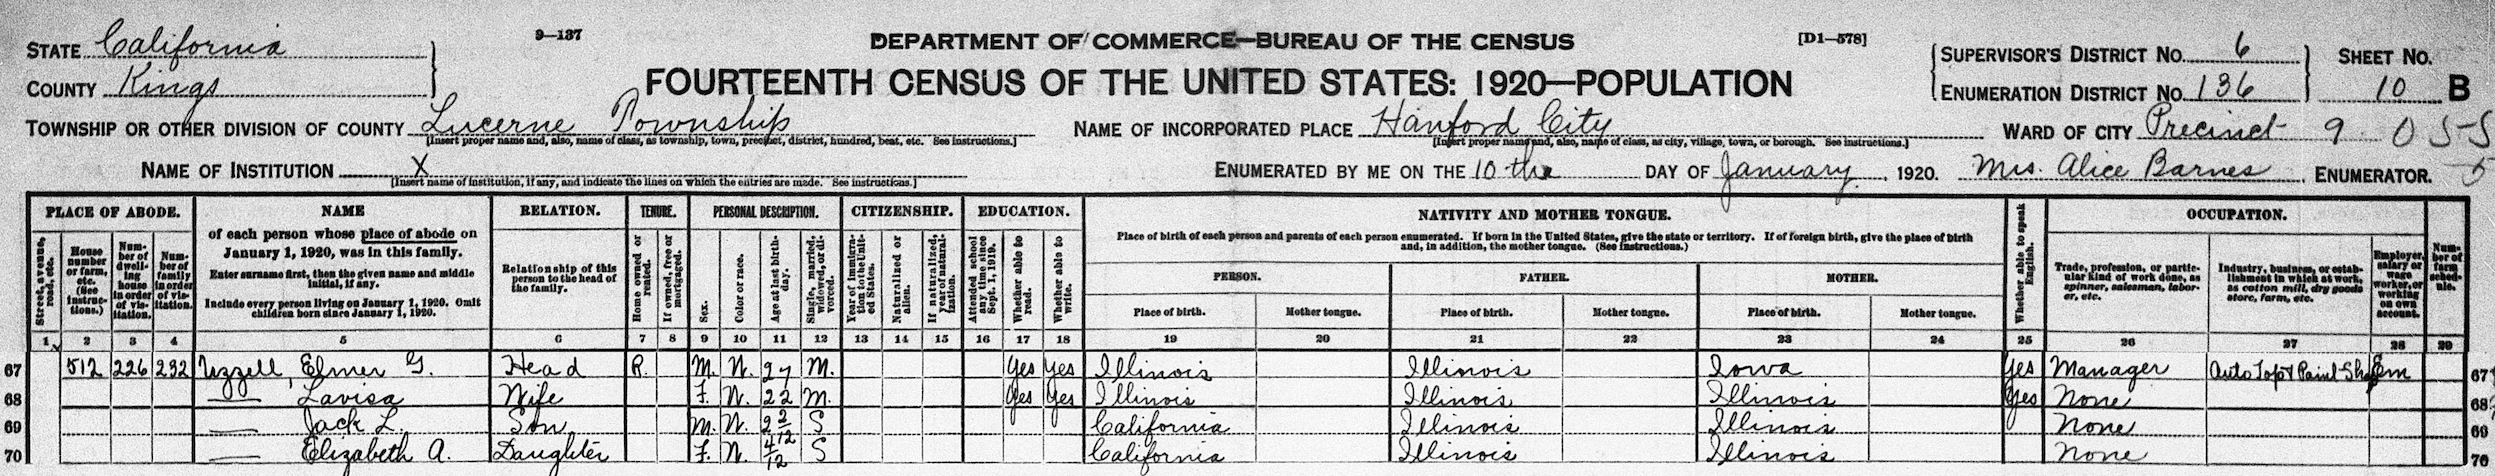 STATE California
9—137
DEPARTMENT OF COMMERCE—BUREAU OF THE CENSUS
[D1—578]
SUPERVISOR'S DISTRICT NO. 6 SHEET NO.
COUNTY Kings
FOURTEENTH CENSUS OF THE UNITED STATES: 1920—POPULATION
ENUMERATION DISTRICT NO. 136 10 B
TOWNSHIP OR OTHER DIVISION OF COUNTY Lucerne Township NAME OF INCORPORATED PLACE Hanford City WARD OF CITY Precinct 9
[Insert proper name and, also, name of class, as township, town, precinct, district, hundred, beat, etc. See instructions.] [Insert proper name and, also, name of class, as city, village, town, or borough. See instructions.]
NAME OF INSTITUTION X ENUMERATED BY ME ON THE 10 th DAY OF January, 1920. Mrs. Alice Barnes, ENUMERATOR.
[Insert name of institution, if any, and indicate the lines on which the entries are made. See instructions.]
PLACE OF ABODE. NAME RELATION. TENURE. PERSONAL DESCRIPTION. CITIZENSHIP. EDUCATION. NATIVITY AND MOTHER TONGUE. OCCUPATION.
Street, avenue, road, etc.
House number or farm, etc. (See instructions.)
Number of dwelling house in order of visitation.
Number of family in order of visitation.
of each person whose place of abode on
January 1, 1920, was in this family.
Enter surname first, then the given name and middle
initial, if any.
Include every person living on January 1, 1920. Omit
children born since January 1, 1920.
Relationship of this
person to the head of
the family.
Home owned or rented.
If owned, free or mortgaged.
Sex.
Color or race.
Age at last birthday.
Single, married, widowed, or divorced.
Year of immigration to the United States.
Naturalized or alien.
If naturalized, year of naturalization.
Attended school any time since Sept. 1, 1919.
Whether able to read.
Whether able to write.
Place of birth of each person and parents of each person enumerated. If born in the United States, give the state or territory. If of foreign birth, give the place of birth
and, in addition, the mother tongue. (See instructions.)
PERSON. FATHER. MOTHER.
Place of birth. Mother tongue. Place of birth. Mother tongue. Place of birth. Mother tongue.
Whether able to speak English.
Trade, profession, or particular kind of work done, as spinner, salesman, laborer, etc.
Industry, business, or establishment in which at work, as cotton mill, dry goods store, farm, etc.
Employer, salary or wage worker, or working on own account.
Number of farm schedule.
1 2 3 4 5 6 7 8 9 10 11 12 13 14 15 16 17 18 19 20 21 22 23 24 25 26 27 28 29
67 512 226 232 Uzzell, Elmer G. Head R. M. W. 27 M. Yes Yes Illinois Illinois Iowa Yes Manager Auto Top & Paint Shop Em 67
68 — Lavisa Wife F. W. 22 M. Yes Yes Illinois Illinois Illinois Yes None 68
69 — Jack L. Son M. W. 2 2/12 S California Illinois Illinois None 69
70 — Elizabeth A. Daughter F. W. 4/12 S California Illinois Illinois None 70